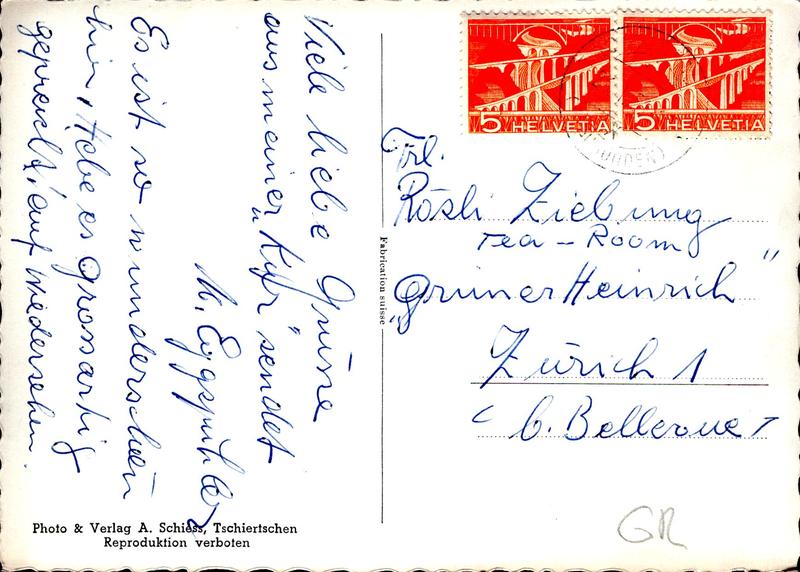 Viele liebe Grüsse
aus meiner "Kur" sendet
M.
Es ist so wunderschön
hier, Habe es grossartig
gepreicht, auf wiedersehen.
Photo & Verlag A. Schiess, Tschiertschen
Reproduktion verboten
Fabrication suisse
5 HELVETIA
5 HELVETIA
Frl.
Rösli Ziebung
Tea-Room
"Grüner Heinrich"
Zürich 1
(b. Bellevue)
GR